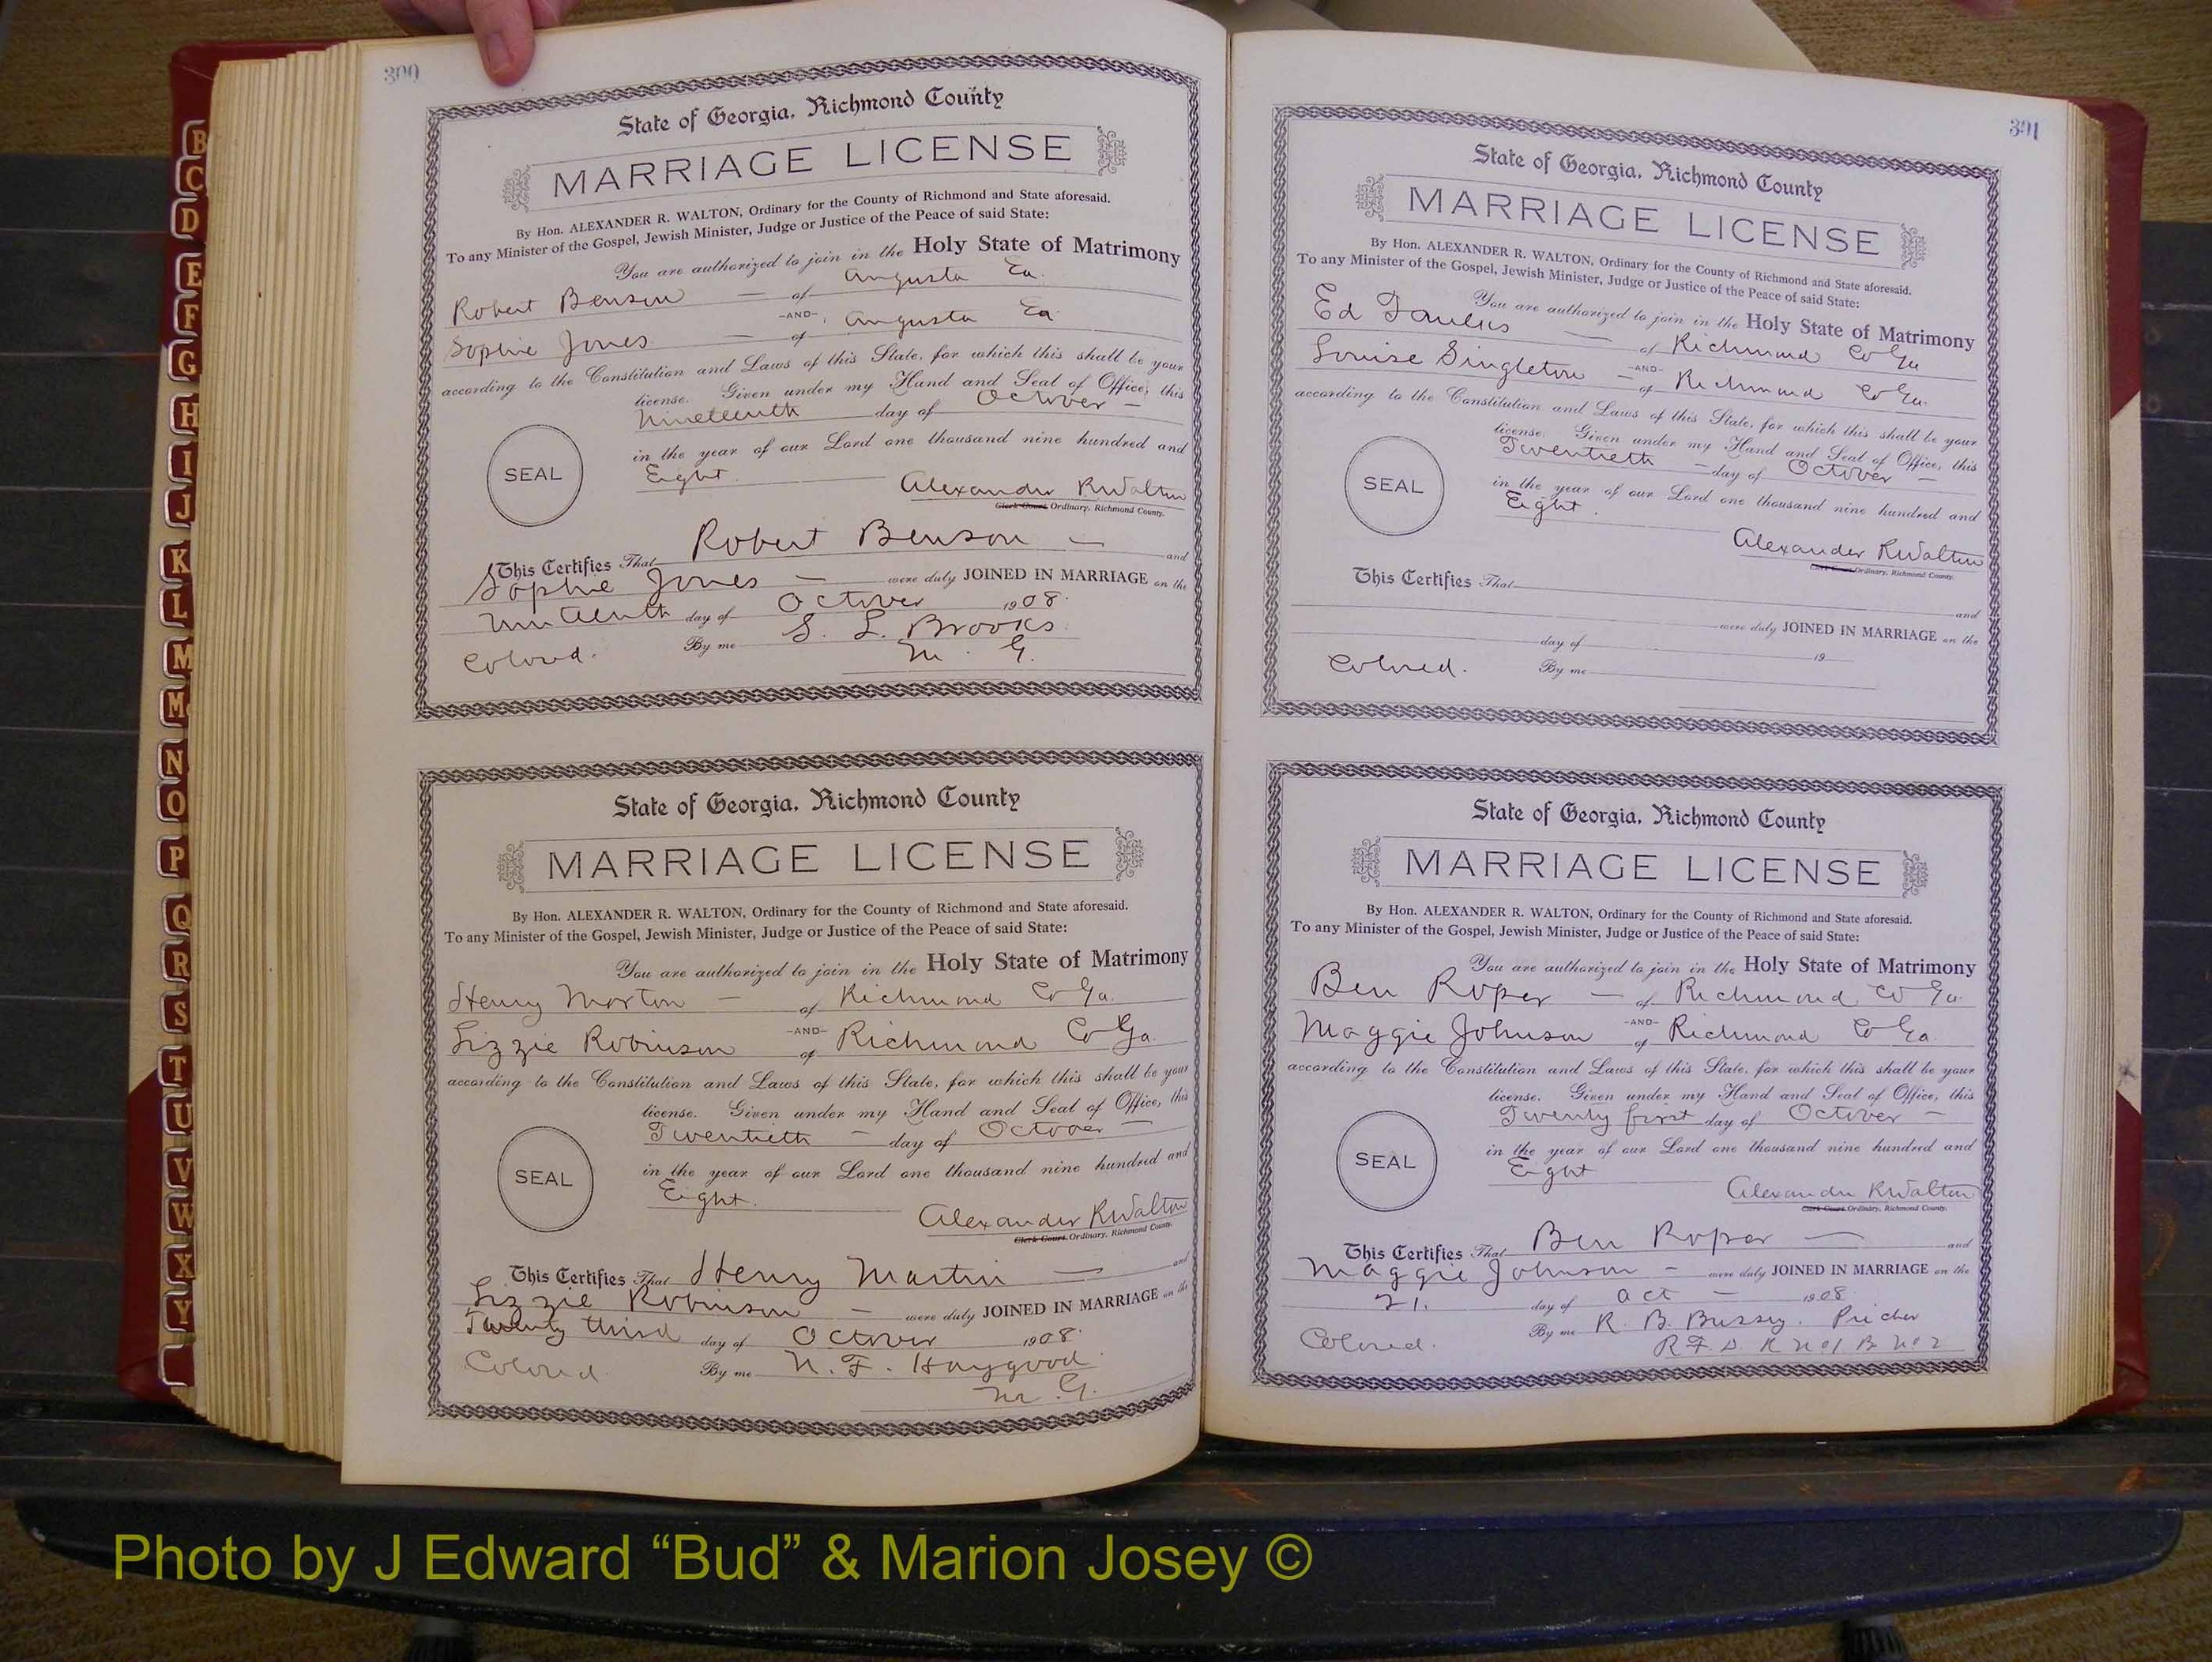 300
State of Georgia, Richmond County
MARRIAGE LICENSE
By Hon. ALEXANDER R. WALTON, Ordinary for the County of Richmond and State aforesaid.
To any Minister of the Gospel, Jewish Minister, Judge or Justice of the Peace of said State:
You are authorized to join in the Holy State of Matrimony
Robert Benson — of Augusta Ga.
-AND-
Sophie Jones — of Augusta Ga
according to the Constitution and Laws of this State, for which this shall be your
license. Given under my Hand and Seal of Office, this
Nineteenth day of October —
in the year of our Lord one thousand nine hundred and
Eight.
SEAL
Alexander R Walton
Clerk Court Ordinary, Richmond County.
This Certifies That Robert Benson — and
Sophie Jones — were duly JOINED IN MARRIAGE on the
Nineteenth day of October 1908.
Colored. By me S. L. Brooks
M. G.
State of Georgia, Richmond County
MARRIAGE LICENSE
By Hon. ALEXANDER R. WALTON, Ordinary for the County of Richmond and State aforesaid.
To any Minister of the Gospel, Jewish Minister, Judge or Justice of the Peace of said State:
You are authorized to join in the Holy State of Matrimony
Henry Morton — of Richmond Co Ga.
-AND-
Lizzie Robinson of Richmond Co Ga.
according to the Constitution and Laws of this State, for which this shall be your
license. Given under my Hand and Seal of Office, this
Twentieth — day of October —
in the year of our Lord one thousand nine hundred and
Eight.
SEAL
Alexander R Walton
Clerk Court Ordinary, Richmond County.
This Certifies That Henry Martin — and
Lizzie Robinson — were duly JOINED IN MARRIAGE on the
Twenty third day of October 1908.
Colored By me N. F. Haygood
M. G.
301
State of Georgia, Richmond County
MARRIAGE LICENSE
By Hon. ALEXANDER R. WALTON, Ordinary for the County of Richmond and State aforesaid.
To any Minister of the Gospel, Jewish Minister, Judge or Justice of the Peace of said State:
You are authorized to join in the Holy State of Matrimony
Ed — of Richmond Co Ga
-AND-
Louise Singleton — of Richmond Co Ga.
according to the Constitution and Laws of this State, for which this shall be your
license. Given under my Hand and Seal of Office, this
Twentieth — day of October —
in the year of our Lord one thousand nine hundred and
Eight.
SEAL
Alexander R Walton
Clerk Court Ordinary, Richmond County.
This Certifies That and
were duly JOINED IN MARRIAGE on the
day of 19
Colored. By me
State of Georgia, Richmond County
MARRIAGE LICENSE
By Hon. ALEXANDER R. WALTON, Ordinary for the County of Richmond and State aforesaid.
To any Minister of the Gospel, Jewish Minister, Judge or Justice of the Peace of said State:
You are authorized to join in the Holy State of Matrimony
Ben Roper — of Richmond Co Ga
-AND-
Maggie Johnson of Richmond Co Ga.
according to the Constitution and Laws of this State, for which this shall be your
license. Given under my Hand and Seal of Office, this
Twenty first day of October —
in the year of our Lord one thousand nine hundred and
Eight
SEAL
Alexander R Walton
Clerk Court Ordinary, Richmond County.
This Certifies That Ben Roper — and
Maggie Johnson — were duly JOINED IN MARRIAGE on the
21. day of Oct — 1908
Colored. By me R. B. Bussey.
R F D
B
C
D
E
F
G
H
I
J
K
L
M
M
N
O
P
Q
R
S
T
U
V
W
X
Y
Photo by J Edward “Bud” & Marion Josey ©